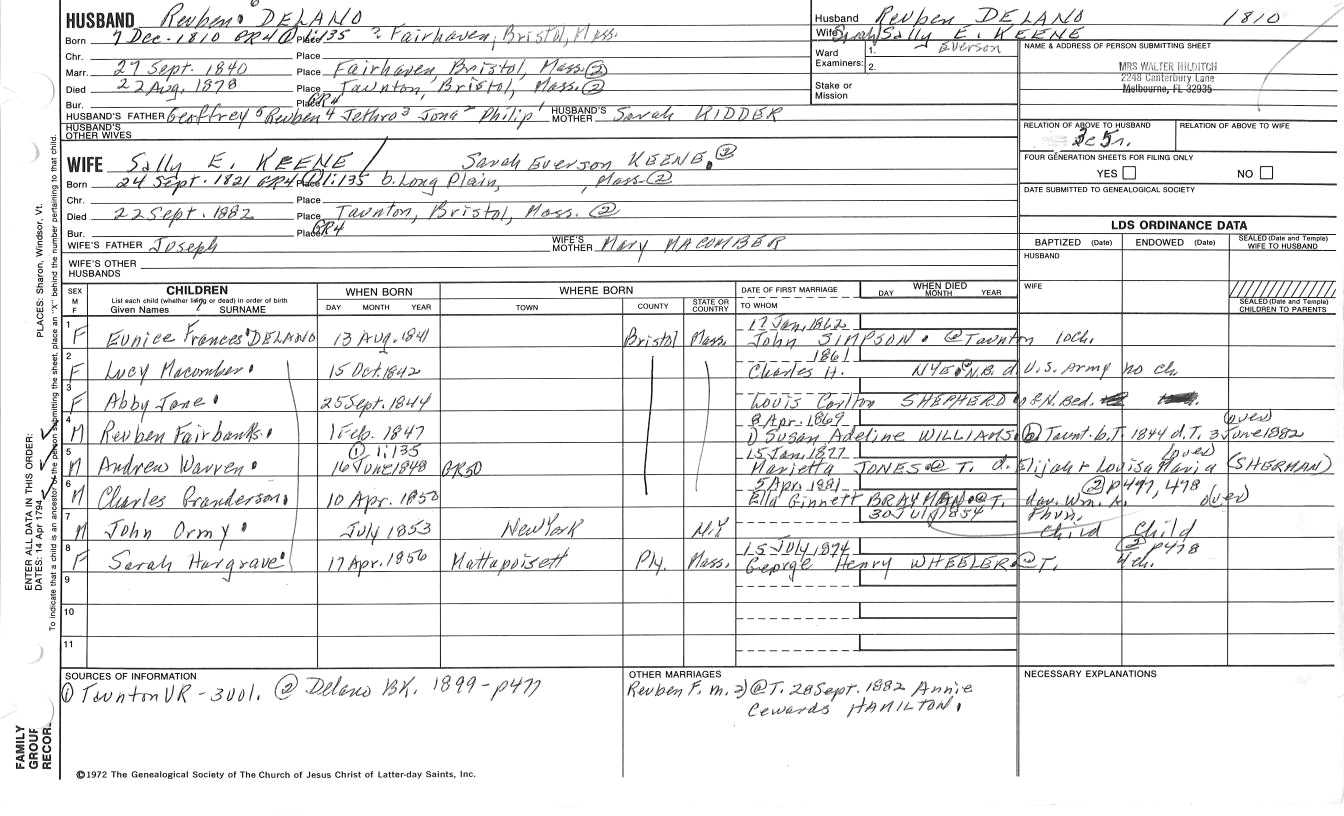 HUSBAND Reuben 6 DELANO
Born 7 Dec. 1810 GR4 ① 1:135 Place ? Fairhaven, Bristol, Mass.
Chr. Place
Marr. 27 Sept. 1840 Place Fairhaven, Bristol, Mass. ②
Died 22 Aug. 1878 Place Taunton, Bristol, Mass. ②
Bur. Place GR4
HUSBAND'S FATHER Geoffrey 5 Reuben 4 Jethro 3 Jona 2 Philip 1 HUSBAND'S MOTHER Sarah KIDDER
HUSBAND'S OTHER WIVES
Husband Reuben DELANO 1810
Wife Sarah/Sally E. KEENE
Everson
Ward 1.
Examiners: 2.
Stake or
Mission
NAME & ADDRESS OF PERSON SUBMITTING SHEET
MRS WALTER HILDITCH
2248 Canterbury Lane
Melbourne, FL 32935
RELATION OF ABOVE TO HUSBAND RELATION OF ABOVE TO WIFE
FOUR GENERATION SHEETS FOR FILING ONLY
YES NO
DATE SUBMITTED TO GENEALOGICAL SOCIETY
WIFE Sally E. KEENE / Sarah Everson KEENE. ②
Born 24 Sept. 1821 GR4 ① Place 1:135 b. Long Plain, , Mass. ②
Chr. Place
Died 22 Sept. 1882 Place Taunton, Bristol, Mass. ②
Bur. Place GR4
WIFE'S FATHER Joseph WIFE'S MOTHER Mary MACOMBER
WIFE'S OTHER
HUSBANDS
LDS ORDINANCE DATA
BAPTIZED (Date) ENDOWED (Date) SEALED (Date and Temple) WIFE TO HUSBAND
HUSBAND
WIFE
SEALED (Date and Temple) CHILDREN TO PARENTS
SEX M F CHILDREN WHEN BORN WHERE BORN DATE OF FIRST MARRIAGE WHEN DIED
List each child (whether living or dead) in order of birth
Given Names SURNAME DAY MONTH YEAR TOWN COUNTY STATE OR COUNTRY TO WHOM DAY MONTH YEAR
7
17 Jan. 1862
1 F Eunice Frances DELANO 13 Aug. 1841 Bristol Mass. John SIMPSON. @ Taunton 10ch.
1861
2 F Lucy Macomber. 15 Oct. 1842 Charles H. NYE @ N.B. d. U.S. Army no ch
3 F Abby Jane. 25 Sept. 1844 Louis Carlton SHEPHERD of N. Bed.
8 Apr. 1869 (over)
4 M Reuben Fairbanks. 1 Feb. 1847 1) Susan Adeline WILLIAMS. @ Taunt. b. T. 1844 d. T. 3 June 1882
① 1:135 15 Jan. 1877 (over)
5 M Andrew Warren. 16 June 1848 GR50 Marietta JONES @ T. d. Elijah & Louisa Maria (SHERMAN)
5 Apr. 1881 ② p477, 478
6 M Charles Granderson. 10 Apr. 1850 Ella Ginnett BRAYMAN. @ T. dav. Wm. A. (over)
30 July 1854
7 M John Ormy. July 1853 New York N.Y Child Child
15 July 1874 ② p478
8 F Sarah Hargrave. 17 Apr. 1856 Mattapoisett Ply. Mass. George Henry WHEELER. @ T. 4ch.
9
10
11
SOURCES OF INFORMATION
① Taunton VR - 3 vol. ② Delano BK. 1899 - p477
OTHER MARRIAGES
Reuben F. m. 2) @ T. 28 Sept. 1882 Annie
Cewards HAMILTON.
NECESSARY EXPLANATIONS
©1972 The Genealogical Society of The Church of Jesus Christ of Latter-day Saints, Inc.
FAMILY
GROUP
RECOR
ENTER ALL DATA IN THIS ORDER:
DATES: 14 Apr 1794
PLACES: Sharon, Windsor, Vt.
To indicate that a child is an ancestor of the person submitting the sheet, place an "X" behind the number pertaining to that child.